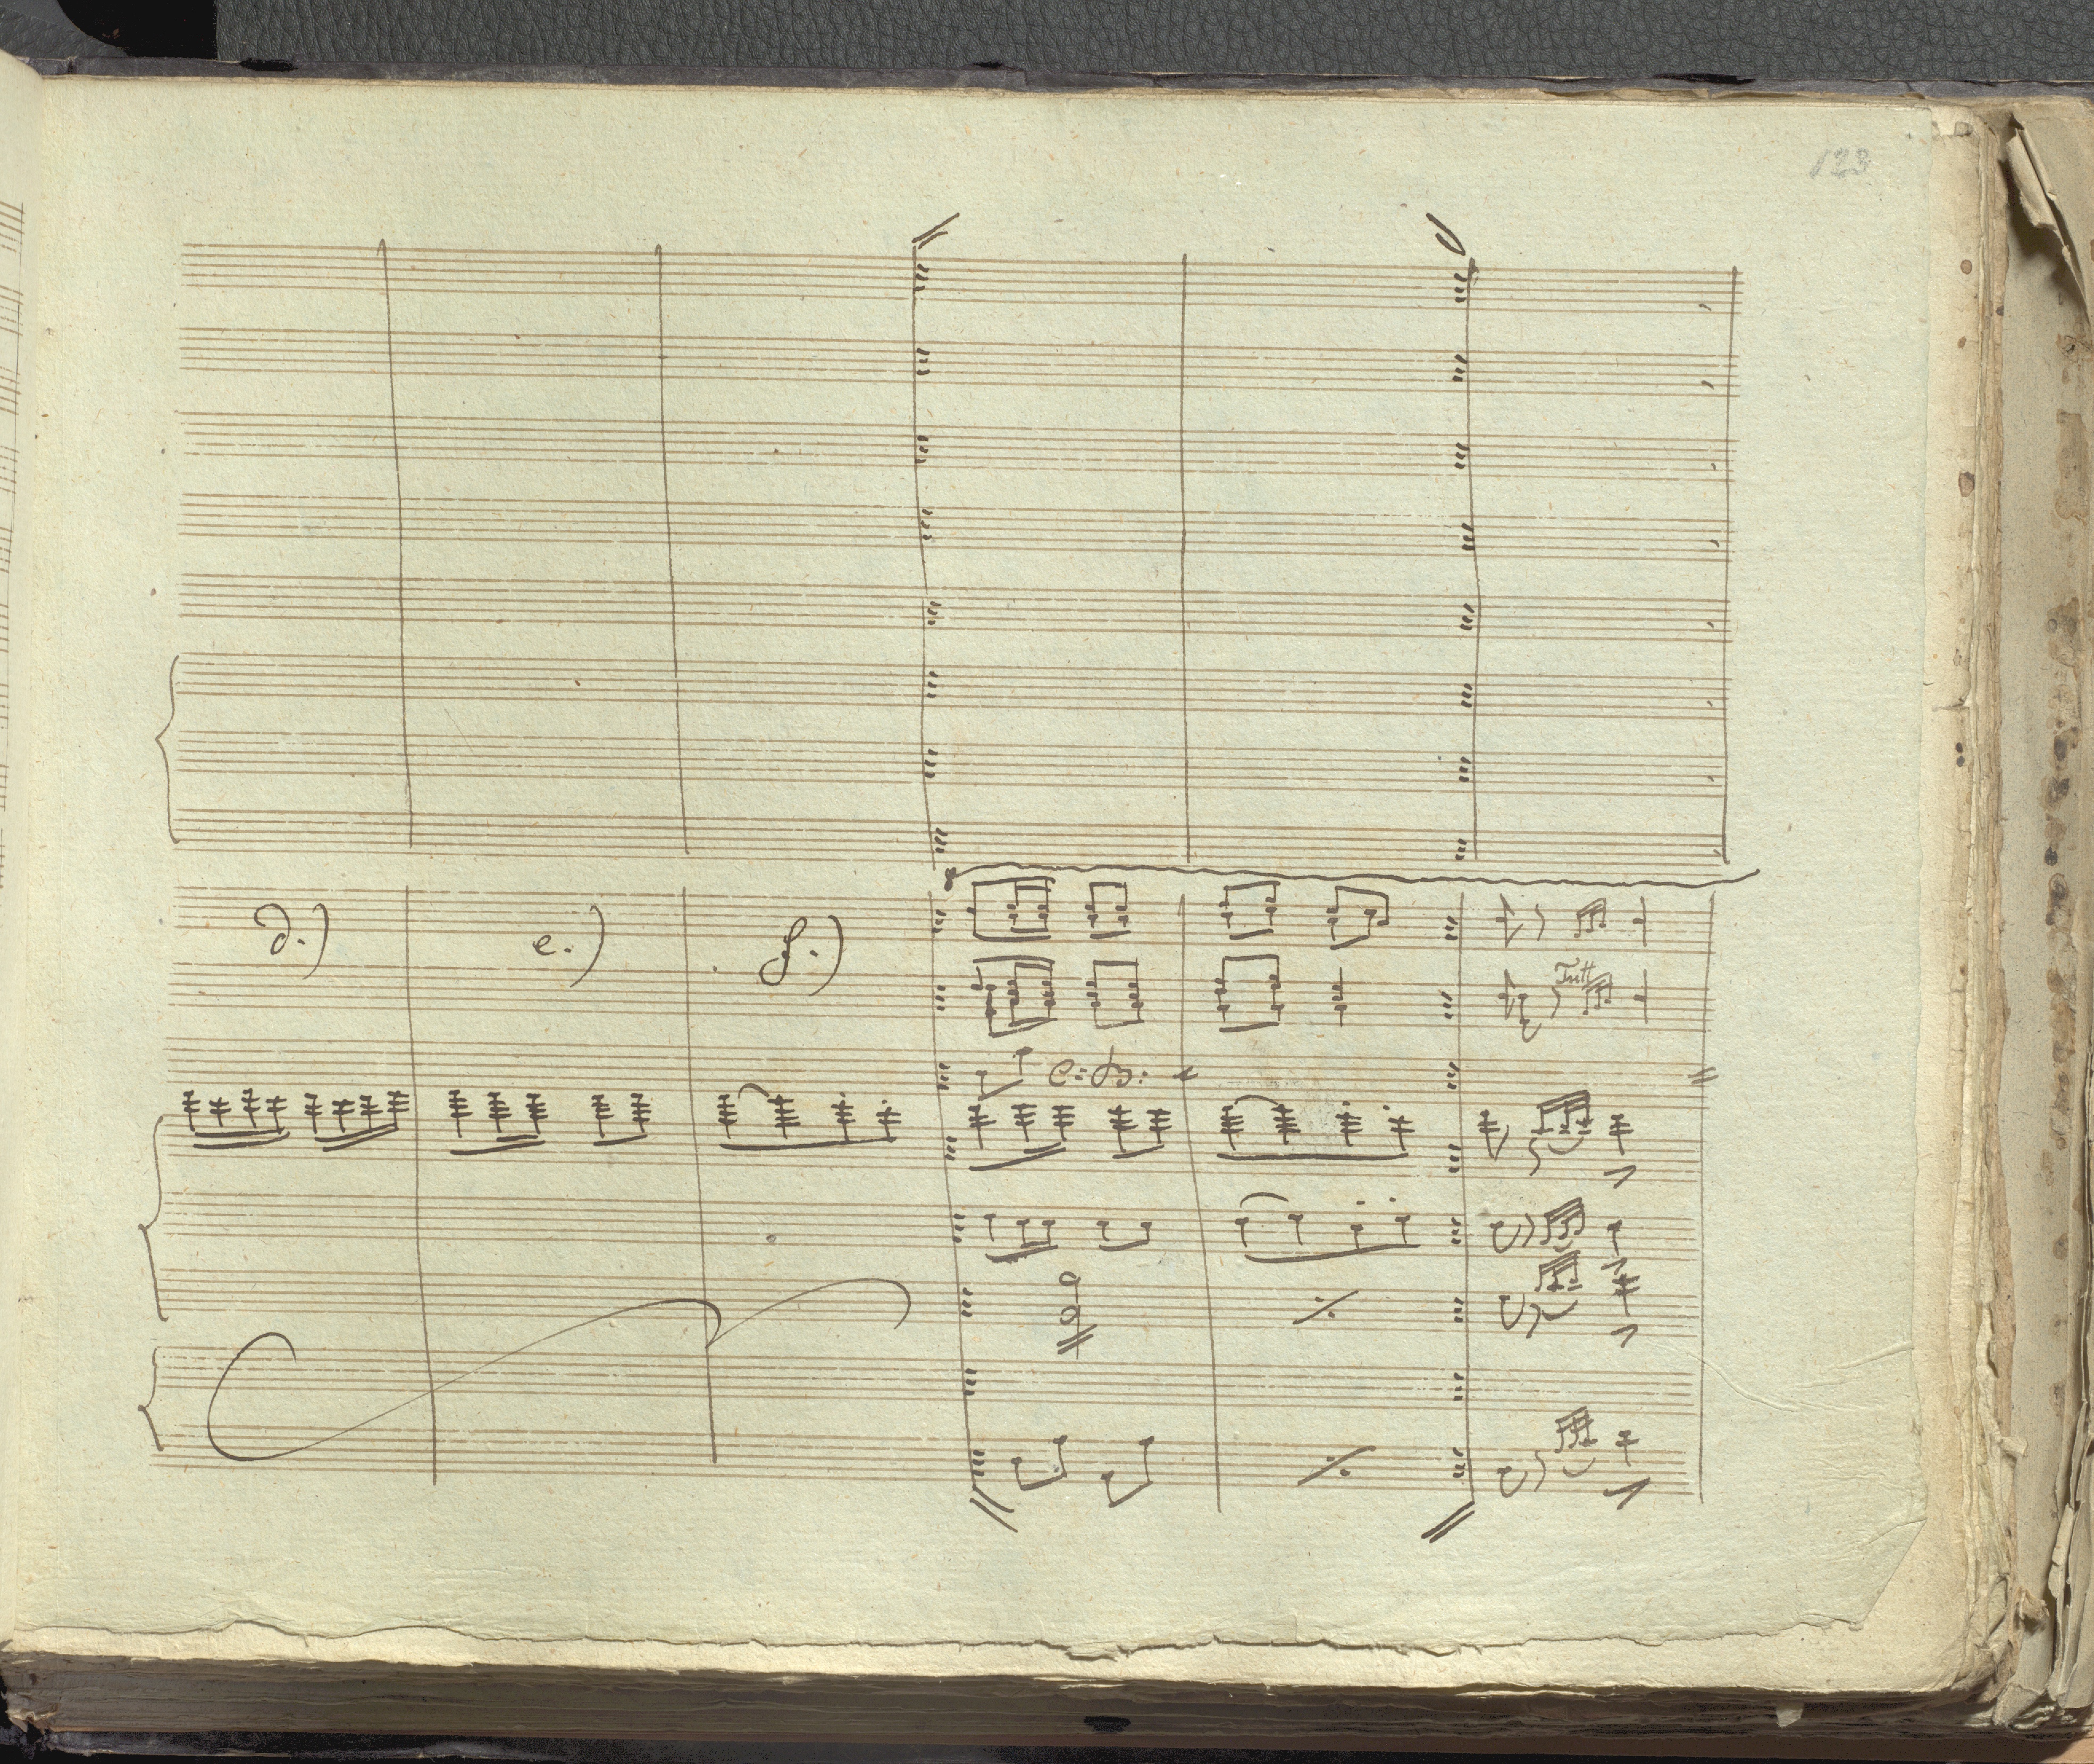 123
d.) e.) f.)
Tutti
c: B: